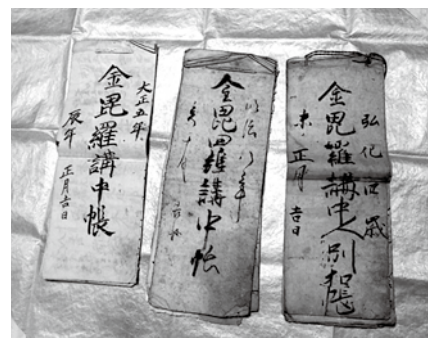 弘化四歳
金毘羅講中人別帳
未 正月 吉日
明治 年
金毘羅講中帳
大正五年
金毘羅講中帳
辰年 正月吉日